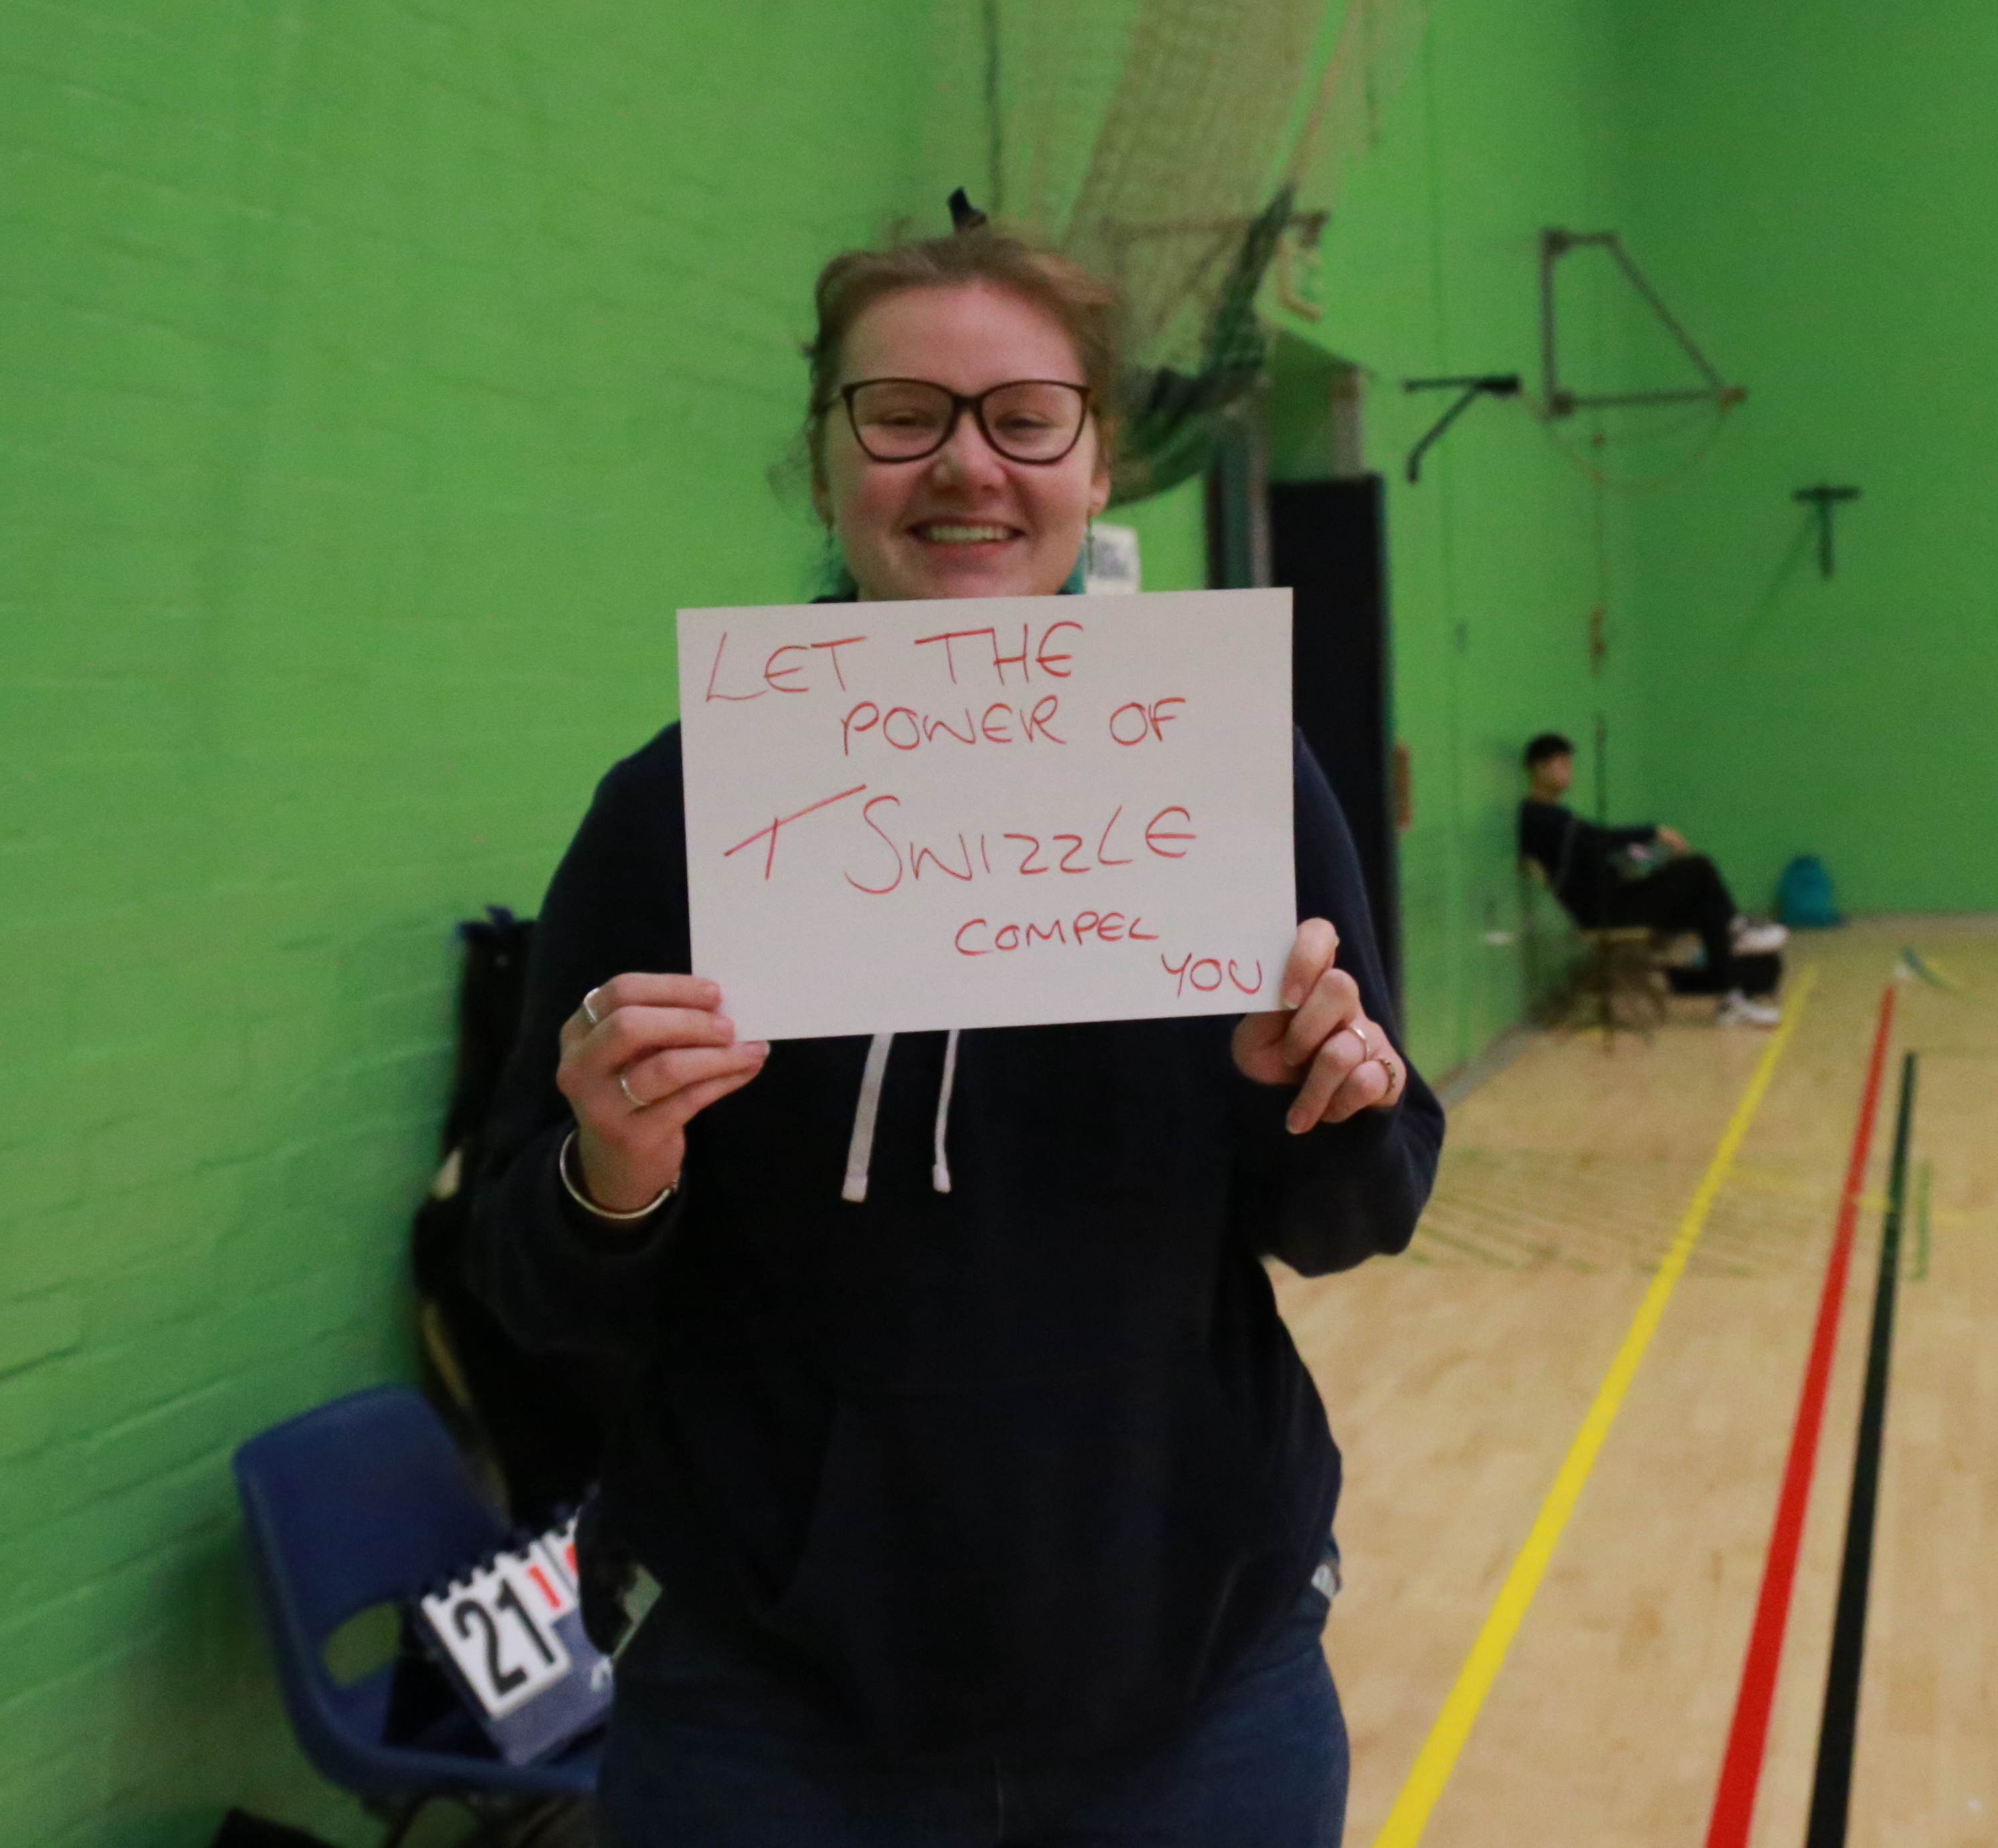 LET THE
POWER OF
T SWIZZLE
COMPEL
YOU
21 1